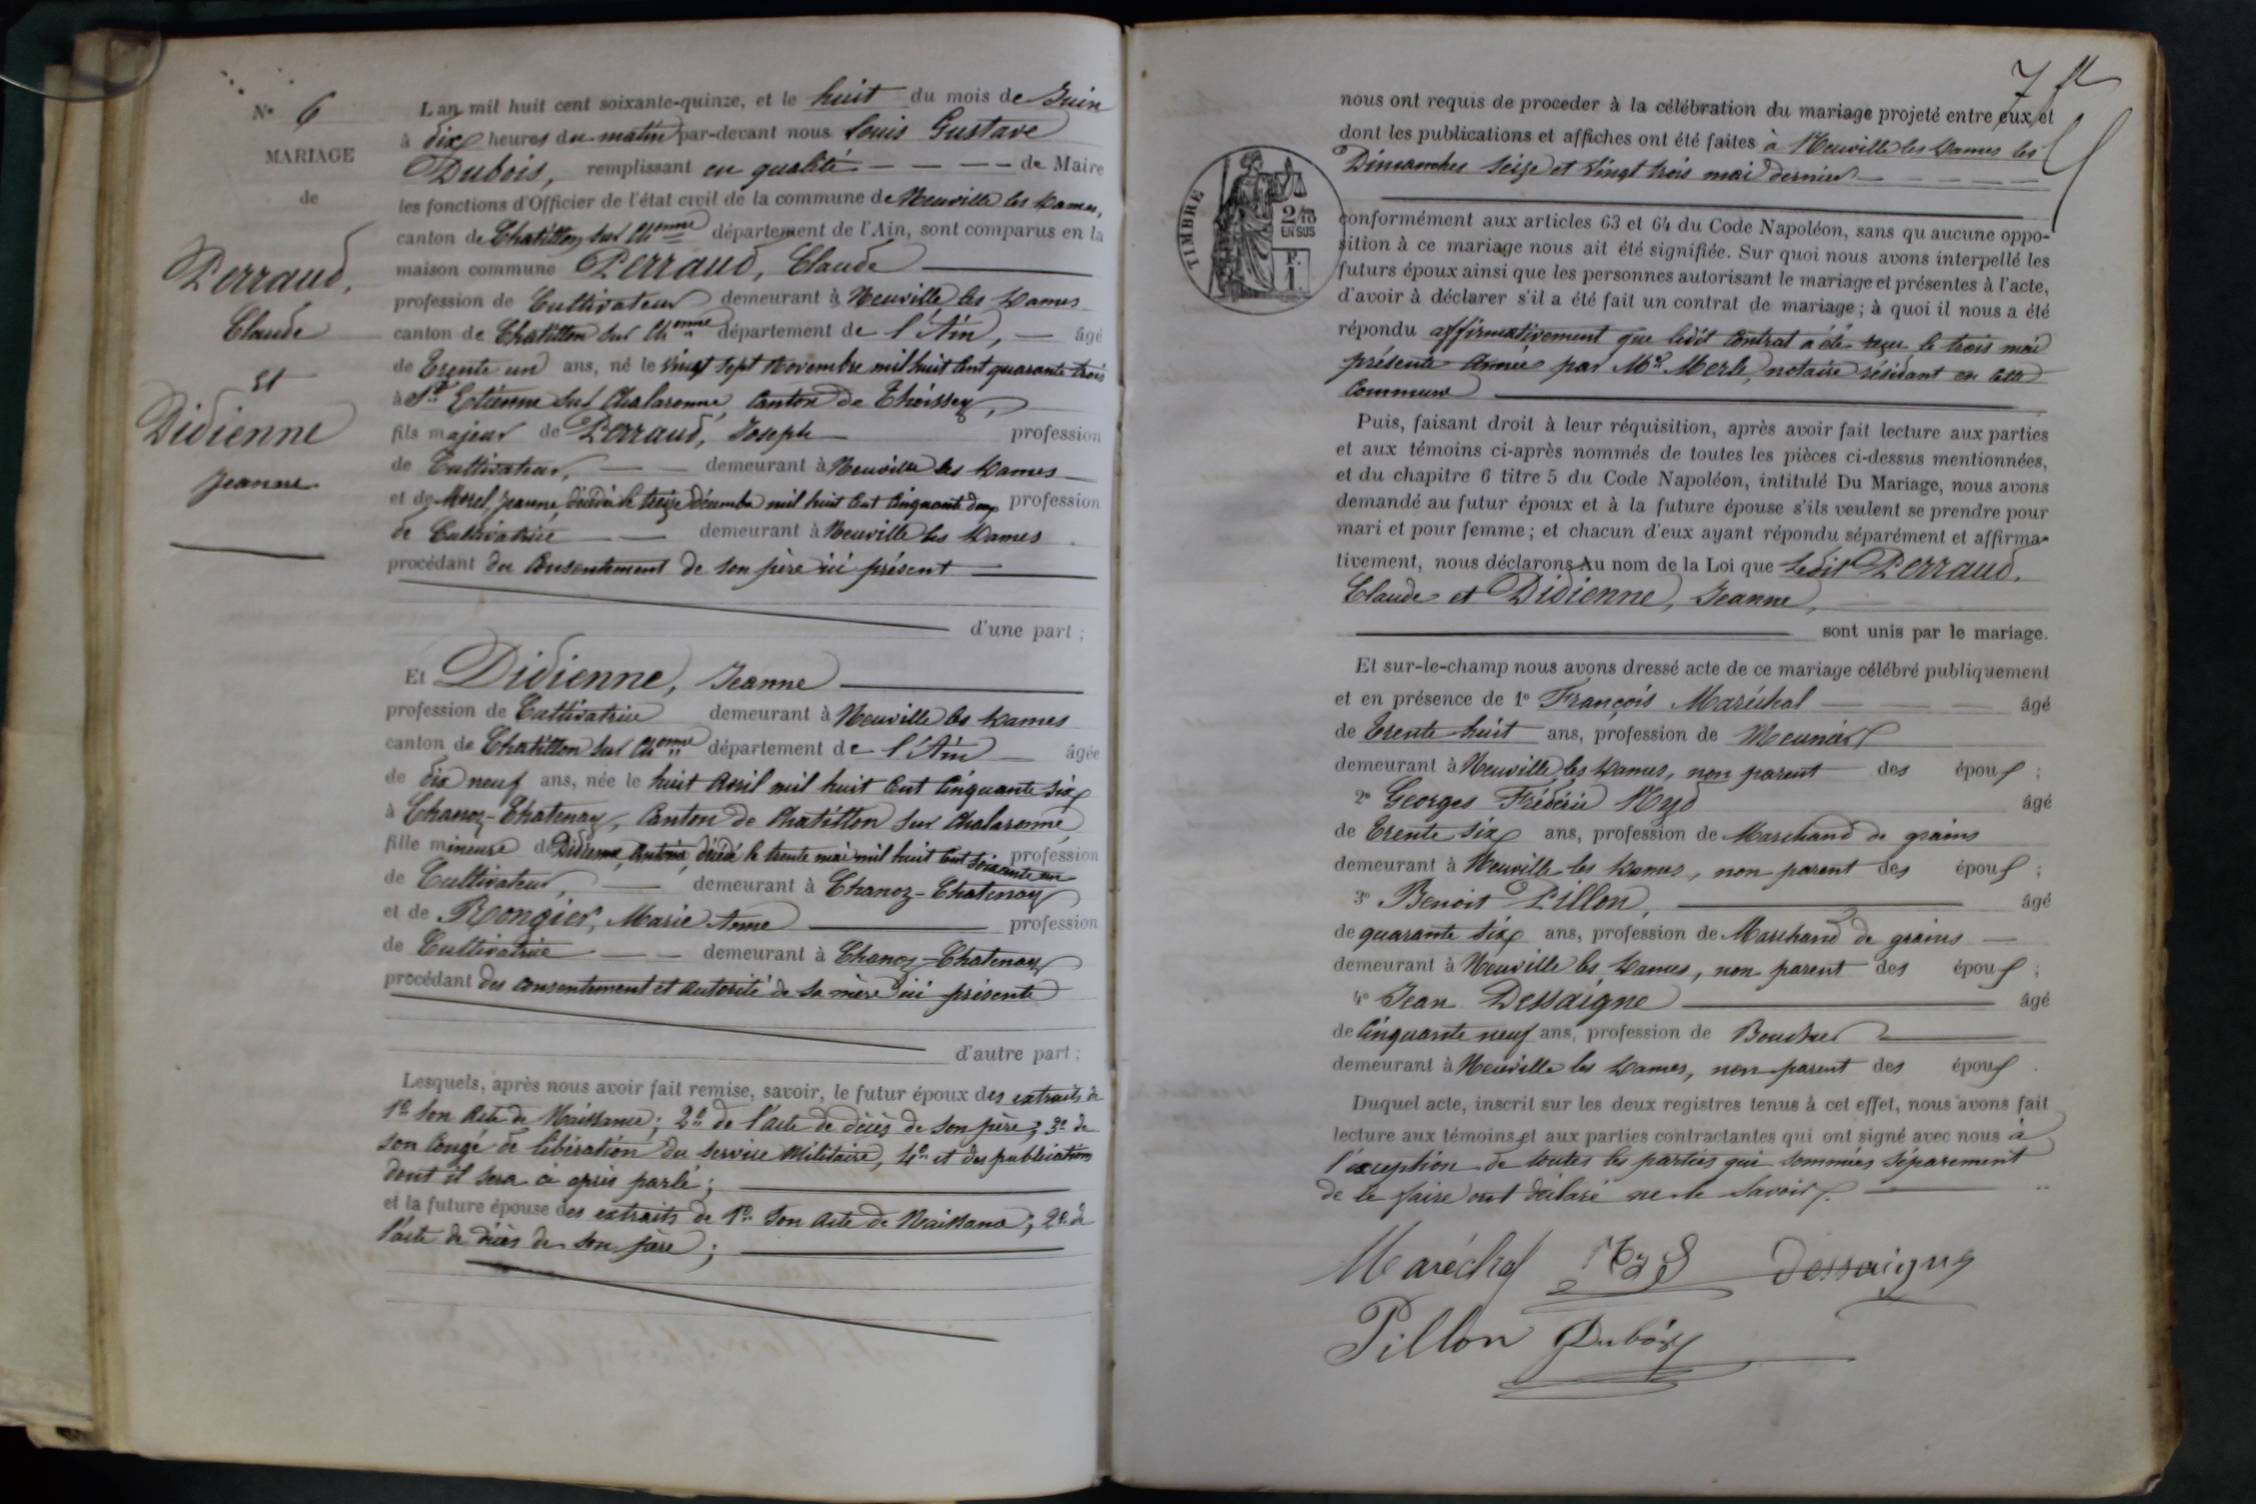 N° 6
MARIAGE
de
Perraud,
Claude
et
Didienne
Jeanne
L'an mil huit cent soixante-quinze, et le huit du mois de Juin
à dix heures du matin par-devant nous Louis Gustave
Dubois, remplissant en qualité — — — — de Maire
les fonctions d'Officier de l'état civil de la commune de Neuville les Dames,
canton de Chatillon sur Chonne département de l'Ain, sont comparus en la
maison commune Perraud, Claude
profession de Cultivateur demeurant à Neuville les Dames
canton de Chatillon sur Chonne département de l'Ain, — âgé
de Trente un ans, né le vingt sept Novembre mil huit cent quarante trois
à St Etienne sur Chalaronne, Canton de Thoissey,
fils majeur de Perraud, Joseph profession
de Cultivateur, — — demeurant à Neuville les Dames
et de Morel, Jeanne, décédée le treize décembre mil huit cent cinquante deux profession
de Cultivatrice — — demeurant à Neuville les Dames
procédant du consentement de son père ici présent
d'une part ;
Et Didienne, Jeanne
profession de Cultivatrice demeurant à Neuville les Dames
canton de Chatillon sur Chonne département de l'Ain — âgée
de dix neuf ans, née le huit Avril mil huit cent cinquante six
à Chanoz-Chatenay, Canton de Chatillon sur Chalaronne
fille mineure de Didienne, Antoine, décédé le trente mai mil huit cent soixante un profession
de Cultivateur, — demeurant à Chanoz-Chatenay
et de Rongier, Marie Anne profession
de Cultivatrice — — demeurant à Chanoz-Chatenay
procédant des consentement et autorité de sa mère ici présente
d'autre part ;
Lesquels, après nous avoir fait remise, savoir, le futur époux des extraits de
1° son acte de Naissance ; 2° de l'acte de décès de son père ; 3° de
son Congé de libération du service Militaire, 4° et des publications
dont il sera ci après parlé ;
et la future épouse des extraits de 1° son acte de Naissance ; 2° de
l'acte de décès de son père ;
7
nous ont requis de procéder à la célébration du mariage projeté entre eux, et
dont les publications et affiches ont été faites à Neuville les Dames les
Dimanches seize et vingt trois mai dernier — — — —
TIMBRE
2/10
EN SUS
P.
1.
conformément aux articles 63 et 64 du Code Napoléon, sans qu'aucune oppo-
sition à ce mariage nous ait été signifiée. Sur quoi nous avons interpellé les
futurs époux ainsi que les personnes autorisant le mariage et présentes à l'acte,
d'avoir à déclarer s'il a été fait un contrat de mariage ; à quoi il nous a été
répondu affirmativement que ledit contrat a été reçu le trois mai
présente année par Me Merle, notaire résidant en cette
Commune
Puis, faisant droit à leur réquisition, après avoir fait lecture aux parties
et aux témoins ci-après nommés de toutes les pièces ci-dessus mentionnées,
et du chapitre 6 titre 5 du Code Napoléon, intitulé Du Mariage, nous avons
demandé au futur époux et à la future épouse s'ils veulent se prendre pour
mari et pour femme ; et chacun d'eux ayant répondu séparément et affirma-
tivement, nous déclarons Au nom de la Loi que ledit Perraud,
Claude et Didienne, Jeanne,
sont unis par le mariage.
Et sur-le-champ nous avons dressé acte de ce mariage célébré publiquement
et en présence de 1° François Maréchal — — — âgé
de Trente huit ans, profession de Meunier
demeurant à Neuville les Dames, non parent des époux ;
2° Georges Frédéric Nyd âgé
de Trente six ans, profession de Marchand de grains
demeurant à Neuville les Dames, non parent des époux ;
3° Benoit Pillon, âgé
de quarante six ans, profession de Marchand de grains —
demeurant à Neuville les Dames, non parent des époux ;
4° Jean Dessaigne âgé
de Cinquante neuf ans, profession de Boucher
demeurant à Neuville les Dames, non parent des époux .
Duquel acte, inscrit sur les deux registres tenus à cet effet, nous avons fait
lecture aux témoins et aux parties contractantes qui ont signé avec nous à
l'exception de toutes les parties qui sommées séparément
de le faire ont déclaré ne le savoir.
Maréchal Nyd Dessaigne
Pillon Dubois